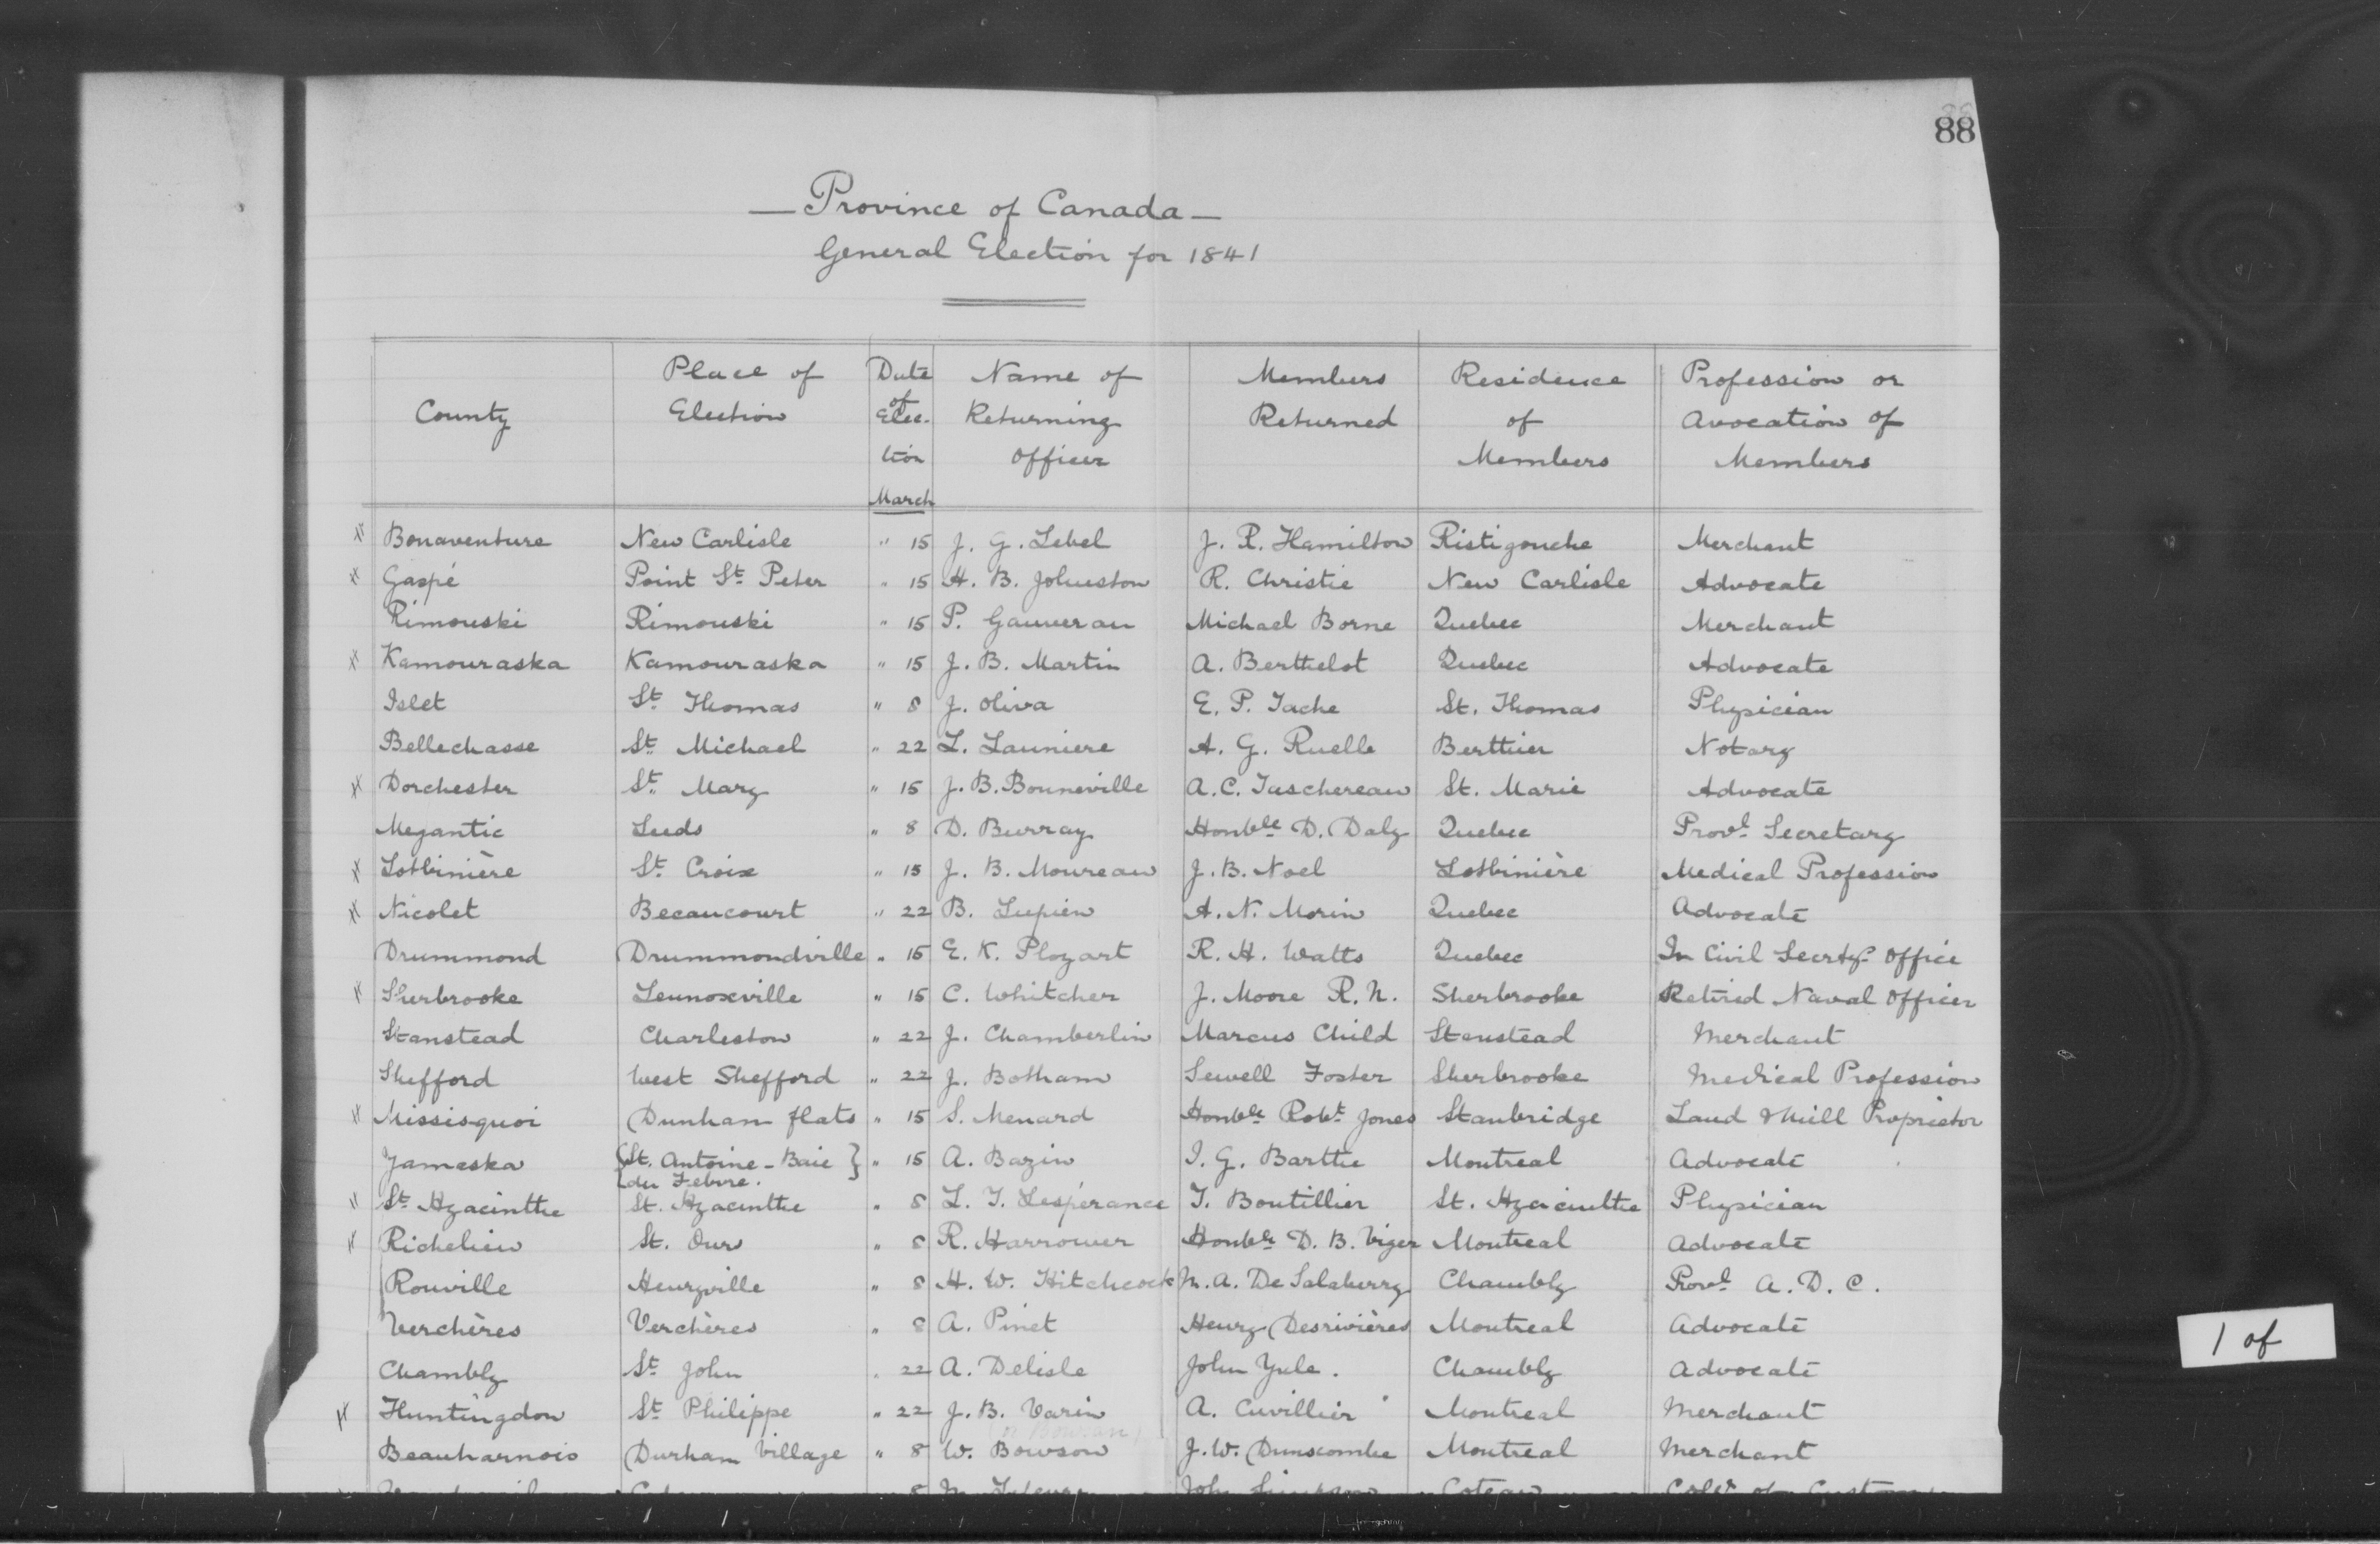 88
— Province of Canada —
General Election for 1841
County Place of Election Date of Elec-tion Name of Returning Officer Members Returned Residence of Members Profession or Avocation of Members
March
Bonaventure New Carlisle " 15 J. G. Lebel J. R. Hamilton Ristigouche Merchant
Gaspé Point St. Peter " 15 H. B. Johnston R. Christie New Carlisle Advocate
Rimouski Rimouski " 15 P. Gauvreau Michael Borne Quebec Merchant
Kamouraska Kamouraska " 15 J. B. Martin A. Berthelot Quebec Advocate
Islet St. Thomas " 8 J. Oliva E. P. Tache St. Thomas Physician
Bellechasse St. Michael " 22 L. Launiere A. G. Ruelle Berthier Notary
Dorchester St. Mary " 15 J. B. Bonneville A. C. Taschereau St. Marie Advocate
Megantic Leeds " 8 D. Burray Honble D. Daly Quebec Provl Secretary
Lotbinière St. Croix " 15 J. B. Moureau J. B. Noel Lotbinière Medical Profession
Nicolet Becancourt " 22 B. Lupien A. N. Morin Quebec Advocate
Drummond Drummondville " 15 E. K. Ployart R. H. Watts Quebec In Civil Secrty's Office
Sherbrooke Lennoxville " 15 C. Whitcher J. Moore R. N. Sherbrooke Retired Naval Officer
Stanstead Charleston " 22 J. Chamberlin Marcus Child Stanstead Merchant
Shefford West Shefford " 22 J. Botham Sewell Foster Sherbrooke Medical Profession
Missisquoi Dunham flats " 15 S. Menard Honble Robt Jones Stanbridge Land & Mill Proprietor
Yamaska {St. Antoine - Baie } " 15 A. Bazin I. G. Barthe Montreal Advocate
du Febvre.
St. Hyacinthe St. Hyacinthe " 8 L. T. Lespérance T. Boutillier St. Hyacinthe Physician
Richelieu St. Ours " 8 R. Harrower Honble D. B. Viger Montreal Advocate
Rouville Henryville " 8 H. W. Hitchcock M. A. De Salaberry Chambly Provl A. D. C.
Verchères Verchères " 8 A. Pinet Henry Desrivières Montreal Advocate
Chambly St. John " 22 A. Delisle John Yule. Chambly Advocate
Huntingdon St. Philippe " 22 J. B. Varin A. Cuvillier Montreal Merchant
(or Bowran)
Beauharnois Durham Village " 8 W. Bowson J. W. Dunscombe Montreal Merchant
John Simpson Coteau
1 of